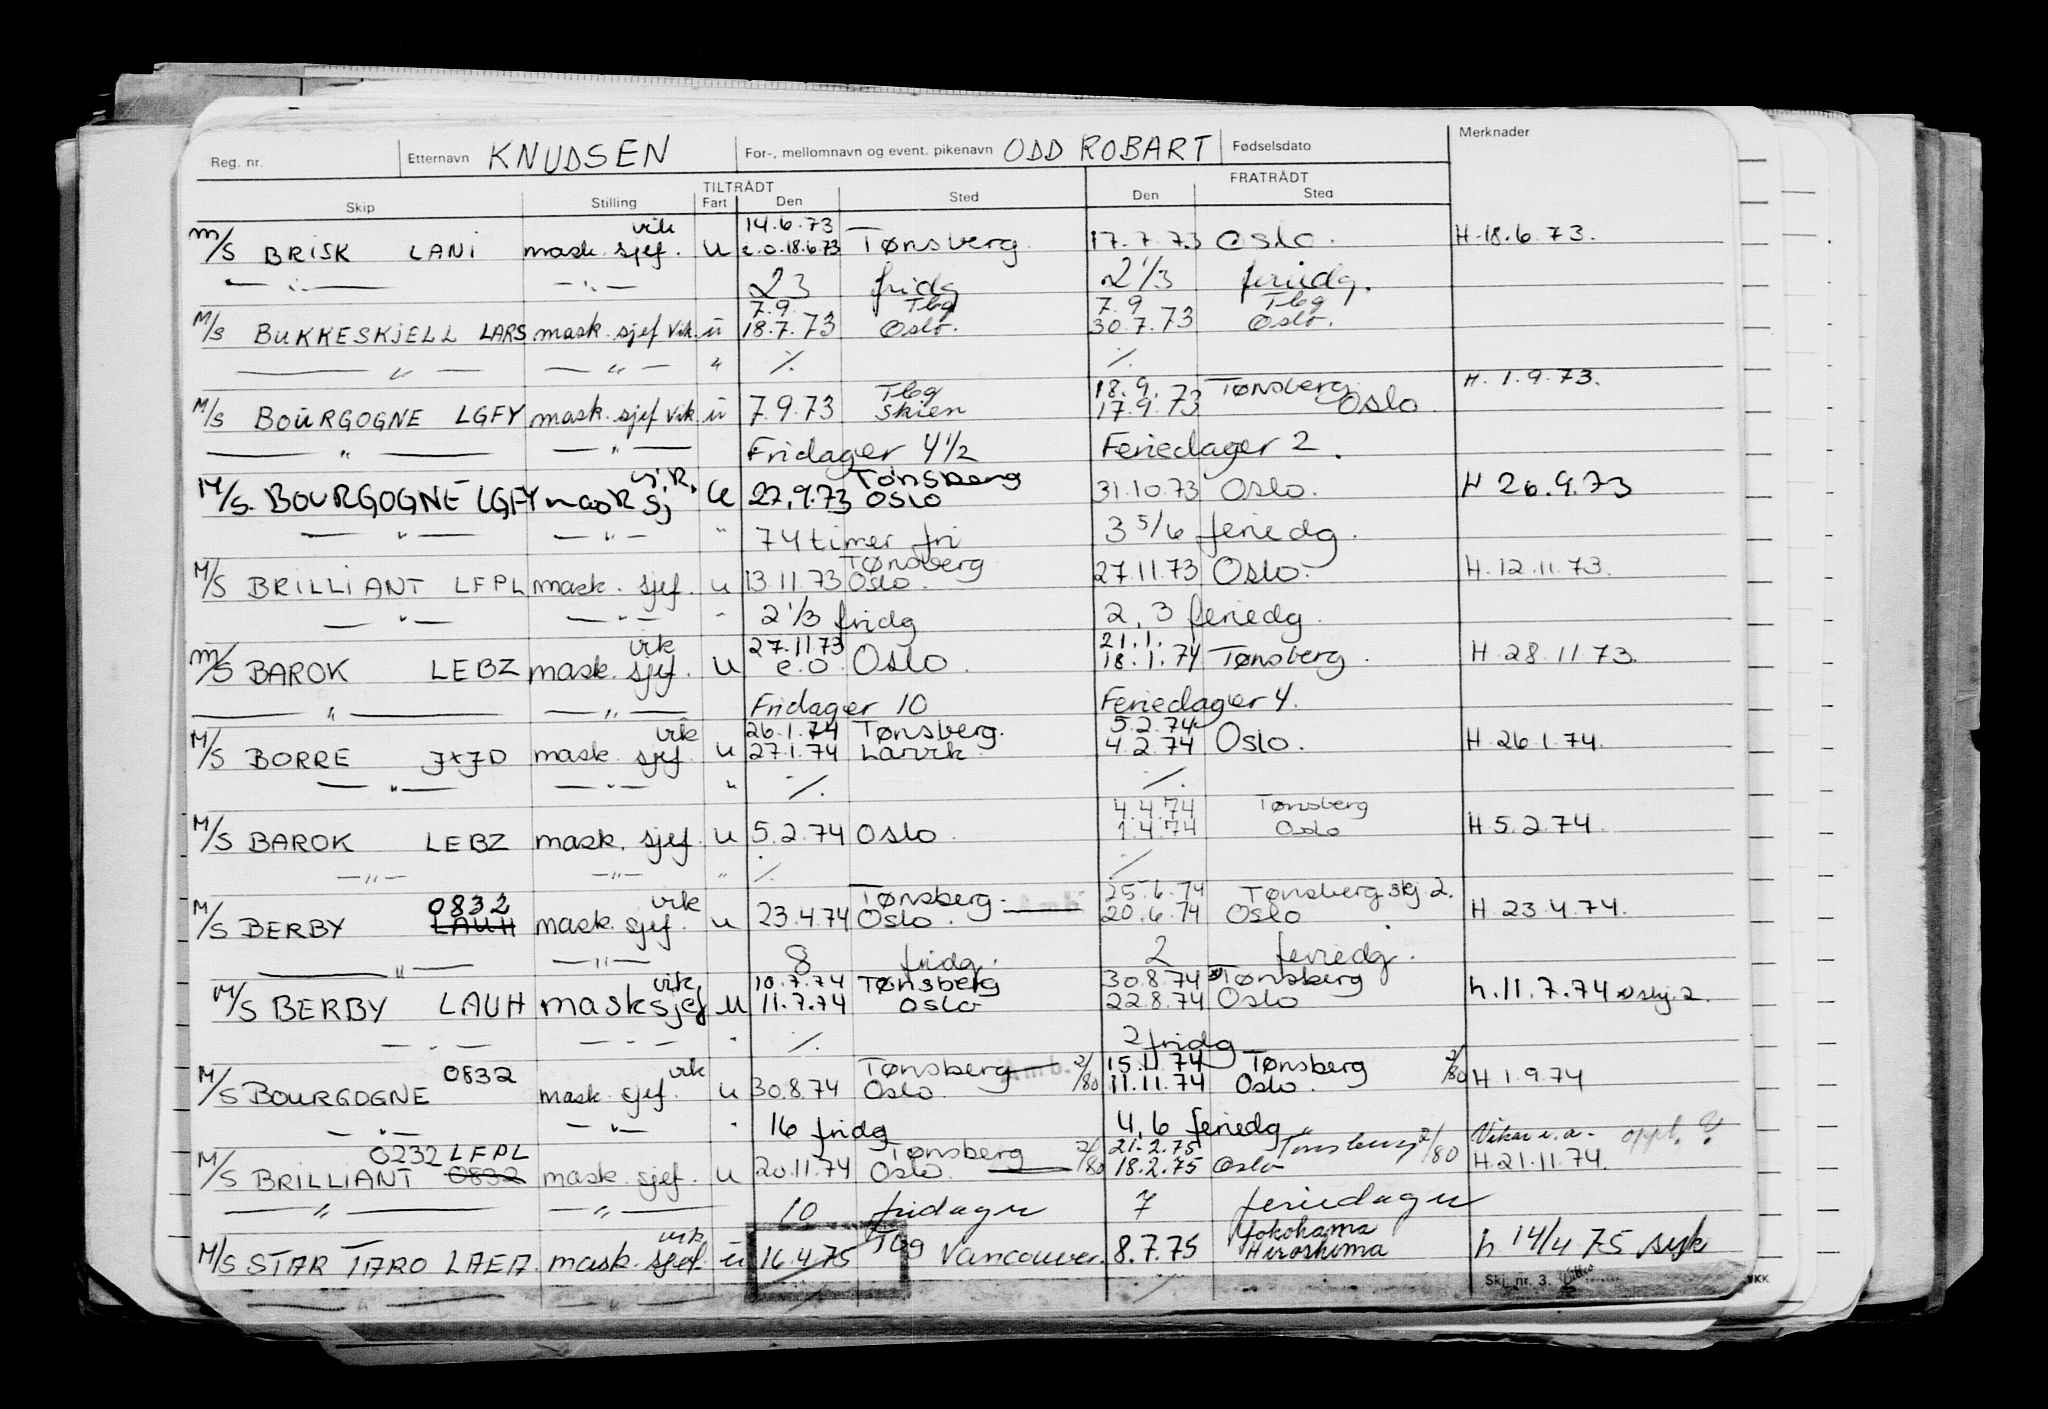 Reg. nr. Etternavn KNUDSEN For-, mellomnavn og event. pikenavn ODD ROBART Fødselsdato Merknader
TILTRÅDT FRATRÅDT
Skip Stilling Fart Den Sted Den Sted
vik 14.6.73
M/S BRISK LANI mask. sjef. u e.o.18.6.73 Tønsberg 17.7.73 Oslo. H.18.6.73.
— " — — " — 23 fridg 2 1/3 feriedg.
7.9. Tbg 7.9 Tbg
M/S BUKKESKJELL LARS mask. sjef vik. u 18.7.73 Oslo. 30.7.73 Oslo.
— " — — " — " ./. ./.
Tbg 18.9. Tønsberg. H. 1.9.73.
M/S BOURGOGNE LGFY mask. sjef vik u 7.9.73 Skien 17.9.73 Oslo
— " — — " — Fridager 4 1/2 Feriedager 2.
vik. Tønsberg
M/S. BOURGOGNE LGFY mask sj u 27.9.73 Oslo 31.10.73 Oslo. H 26.9.73
— " — — " — " 74 timer fri 3 5/6 feriedg.
Tønsberg
M/S BRILLIANT LFPL mask. sjef. u 13.11.73 Oslo. 27.11.73 Oslo. H.12.11.73.
— " — — " — " 2 1/3 fridg 2,3 feriedg.
vik 27.11.73 21.1.
M/S BAROK LEBZ mask. sjef. u e.o. Oslo. 18.1.74 Tønsberg. H.28.11.73.
— " — — " — Fridager 10 Feriedager 4.
vik 26.1.74 Tønsberg. 5.2.74
M/S BORRE JXJD mask. sjef. u 27.1.74 Larvik. 4.2.74 Oslo. H.26.1.74.
— " — — " — " ./. ./.
4.4.74 Tønsberg
M/S BAROK LEBZ mask. sjef. u 5.2.74 Oslo. 1.4.74 Oslo H.5.2.74.
— " — — " — " ./. ./.
0832 vik Tønsberg. 25.6.74 Tønsberg skj. 2.
M/S BERBY LAUH mask. sjef. u 23.4.74 Oslo. 20.6.74 Oslo H.23.4.74.
— " — — " — 8 fridg. 2 feriedg.
vik. 10.7.74 Tønsberg 30.8.74 Tønsberg
M/S BERBY LAUH mask sjef u 11.7.74 Oslo 22.8.74 Oslo h.11.7.74 skj. 2.
— " — — " — " ./. 2 fridg
0832 vik Tønsberg 2/80 15.11.74 Tønsberg 2/80
M/S BOURGOGNE mask. sjef. u 30.8.74 Oslo. 11.11.74 Oslo. H 1.9.74
— " — — " — " 16 fridg 4,6 feriedg
0232 LFPL Tønsberg 2/80 21.2.75 Tønsberg 2/80 Vikar i.a. oppl. ?
M/S BRILLIANT 0832 mask. sjef. u 20.11.74 Oslo. 18.2.75 Oslo H.21.11.74.
— " — — " — 10 fridager 7 feriedager
vik Tbg Yokohama
M/S STAR TARO LAEA. mask. sjef. u 16.4.75 Vancouver. 8.7.75 Hiroshima h 14/4 75 syk
Skj. nr. 3.
— " — — " — ./. ./.